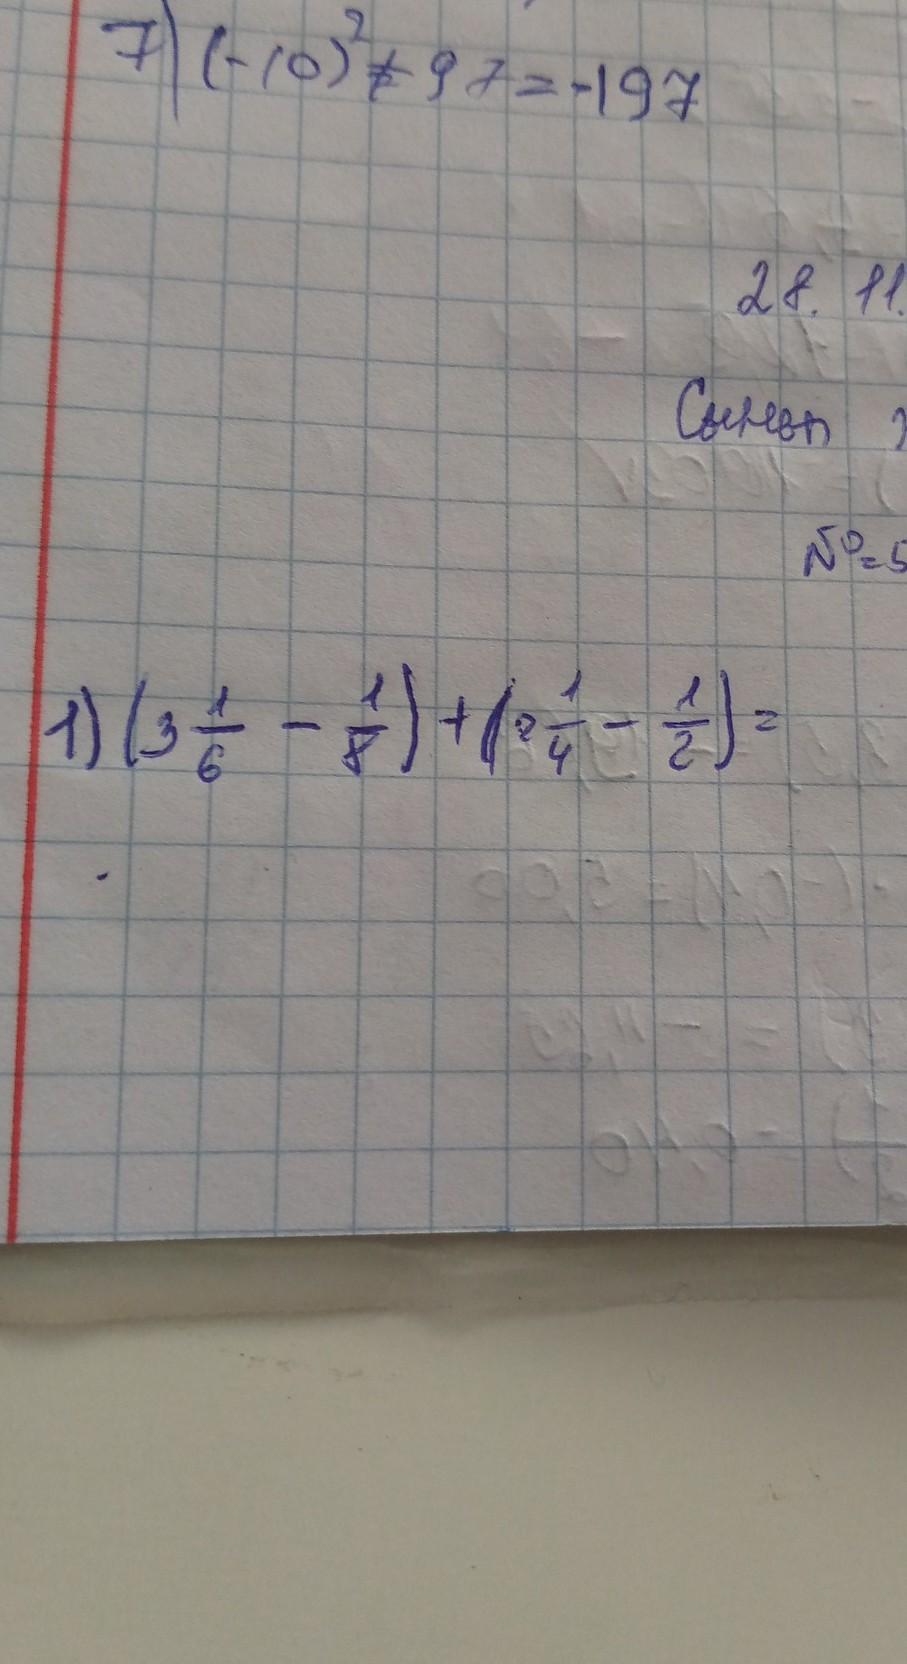 7) (-10)² + 97 = -197
28. 11.
Сынып
№ = 5
1) (3 1/6 - 1/8) + (2 1/4 - 1/2) =